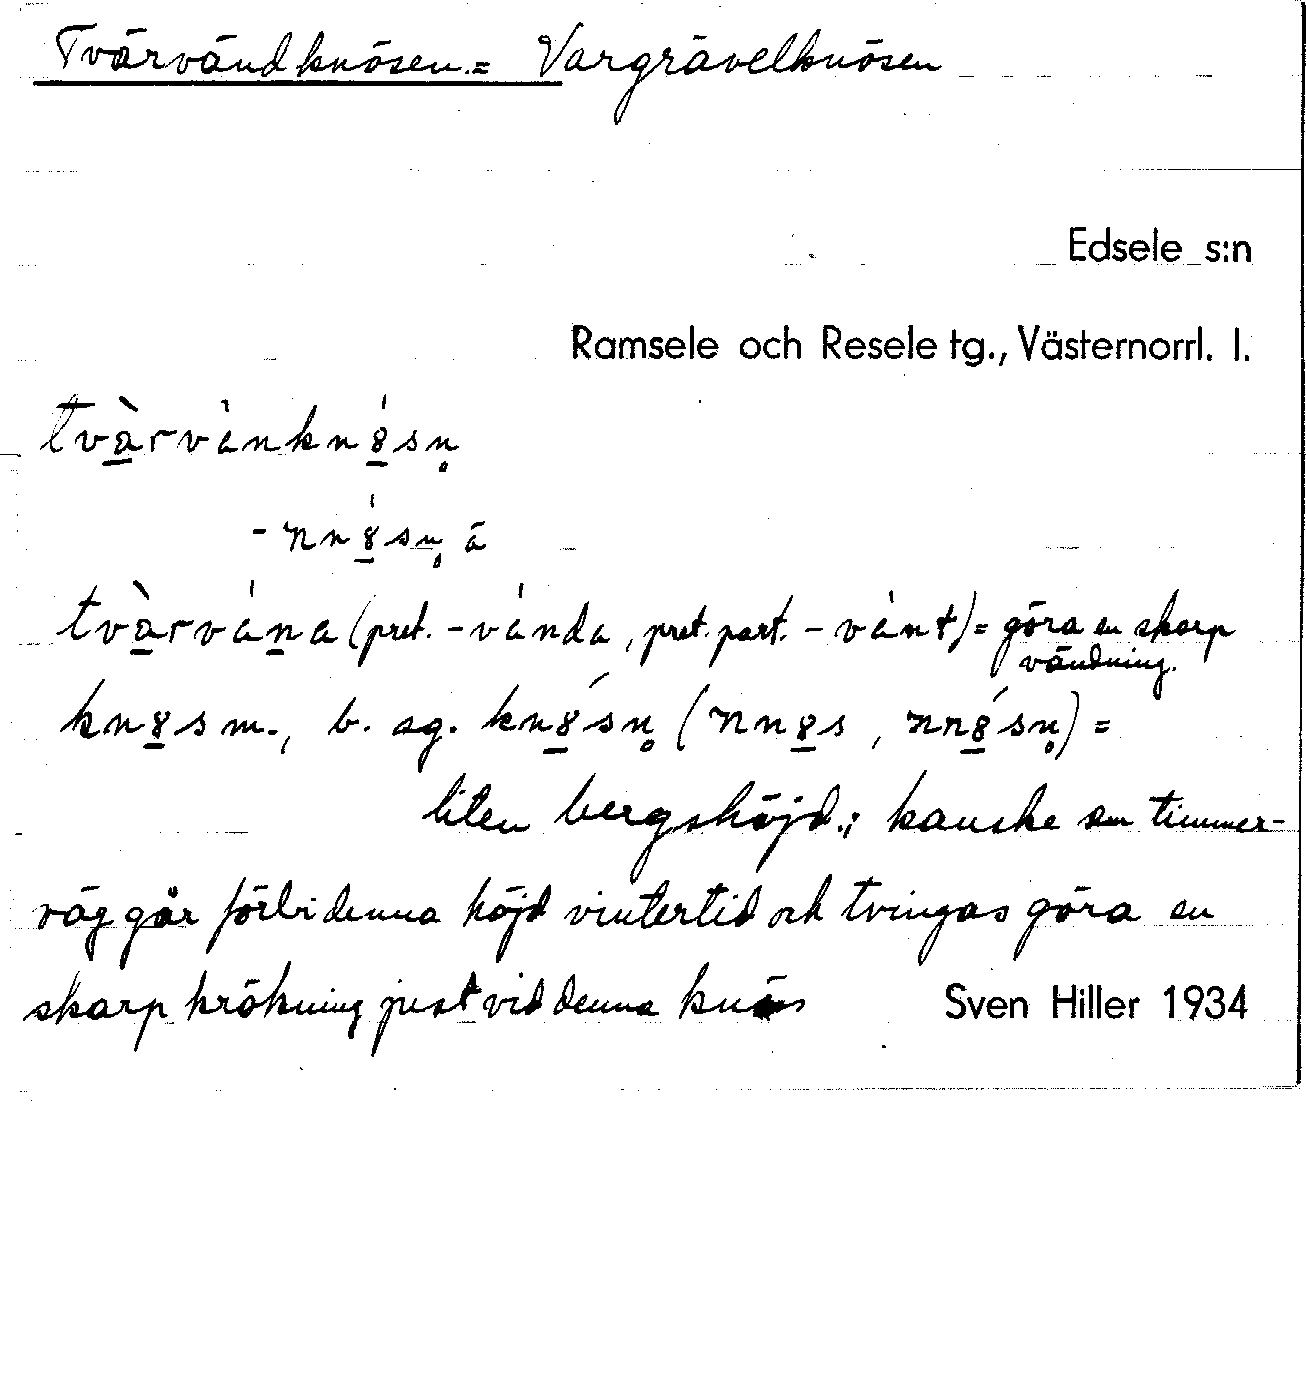 Tvärvändknösen = Vargrävelknösen
Edsele s:n
Ramsele och Resele tg., Västernorrl. l.
tvàrvànkn8́sn̥
-nn8́sn̥ ä
tvàrvána (pret. -vánda, pret. part. -vánt) = göra en skarp
vändning.
kn8s m., b. sg. kn8́sn̥ (nn8s, nn8́sn̥) =
liten bergshöjd.; kanske en timmer-
väg går förbi denna höjd vintertid och tvingas göra en
skarp krökning just vid denna knös
Sven Hiller 1934